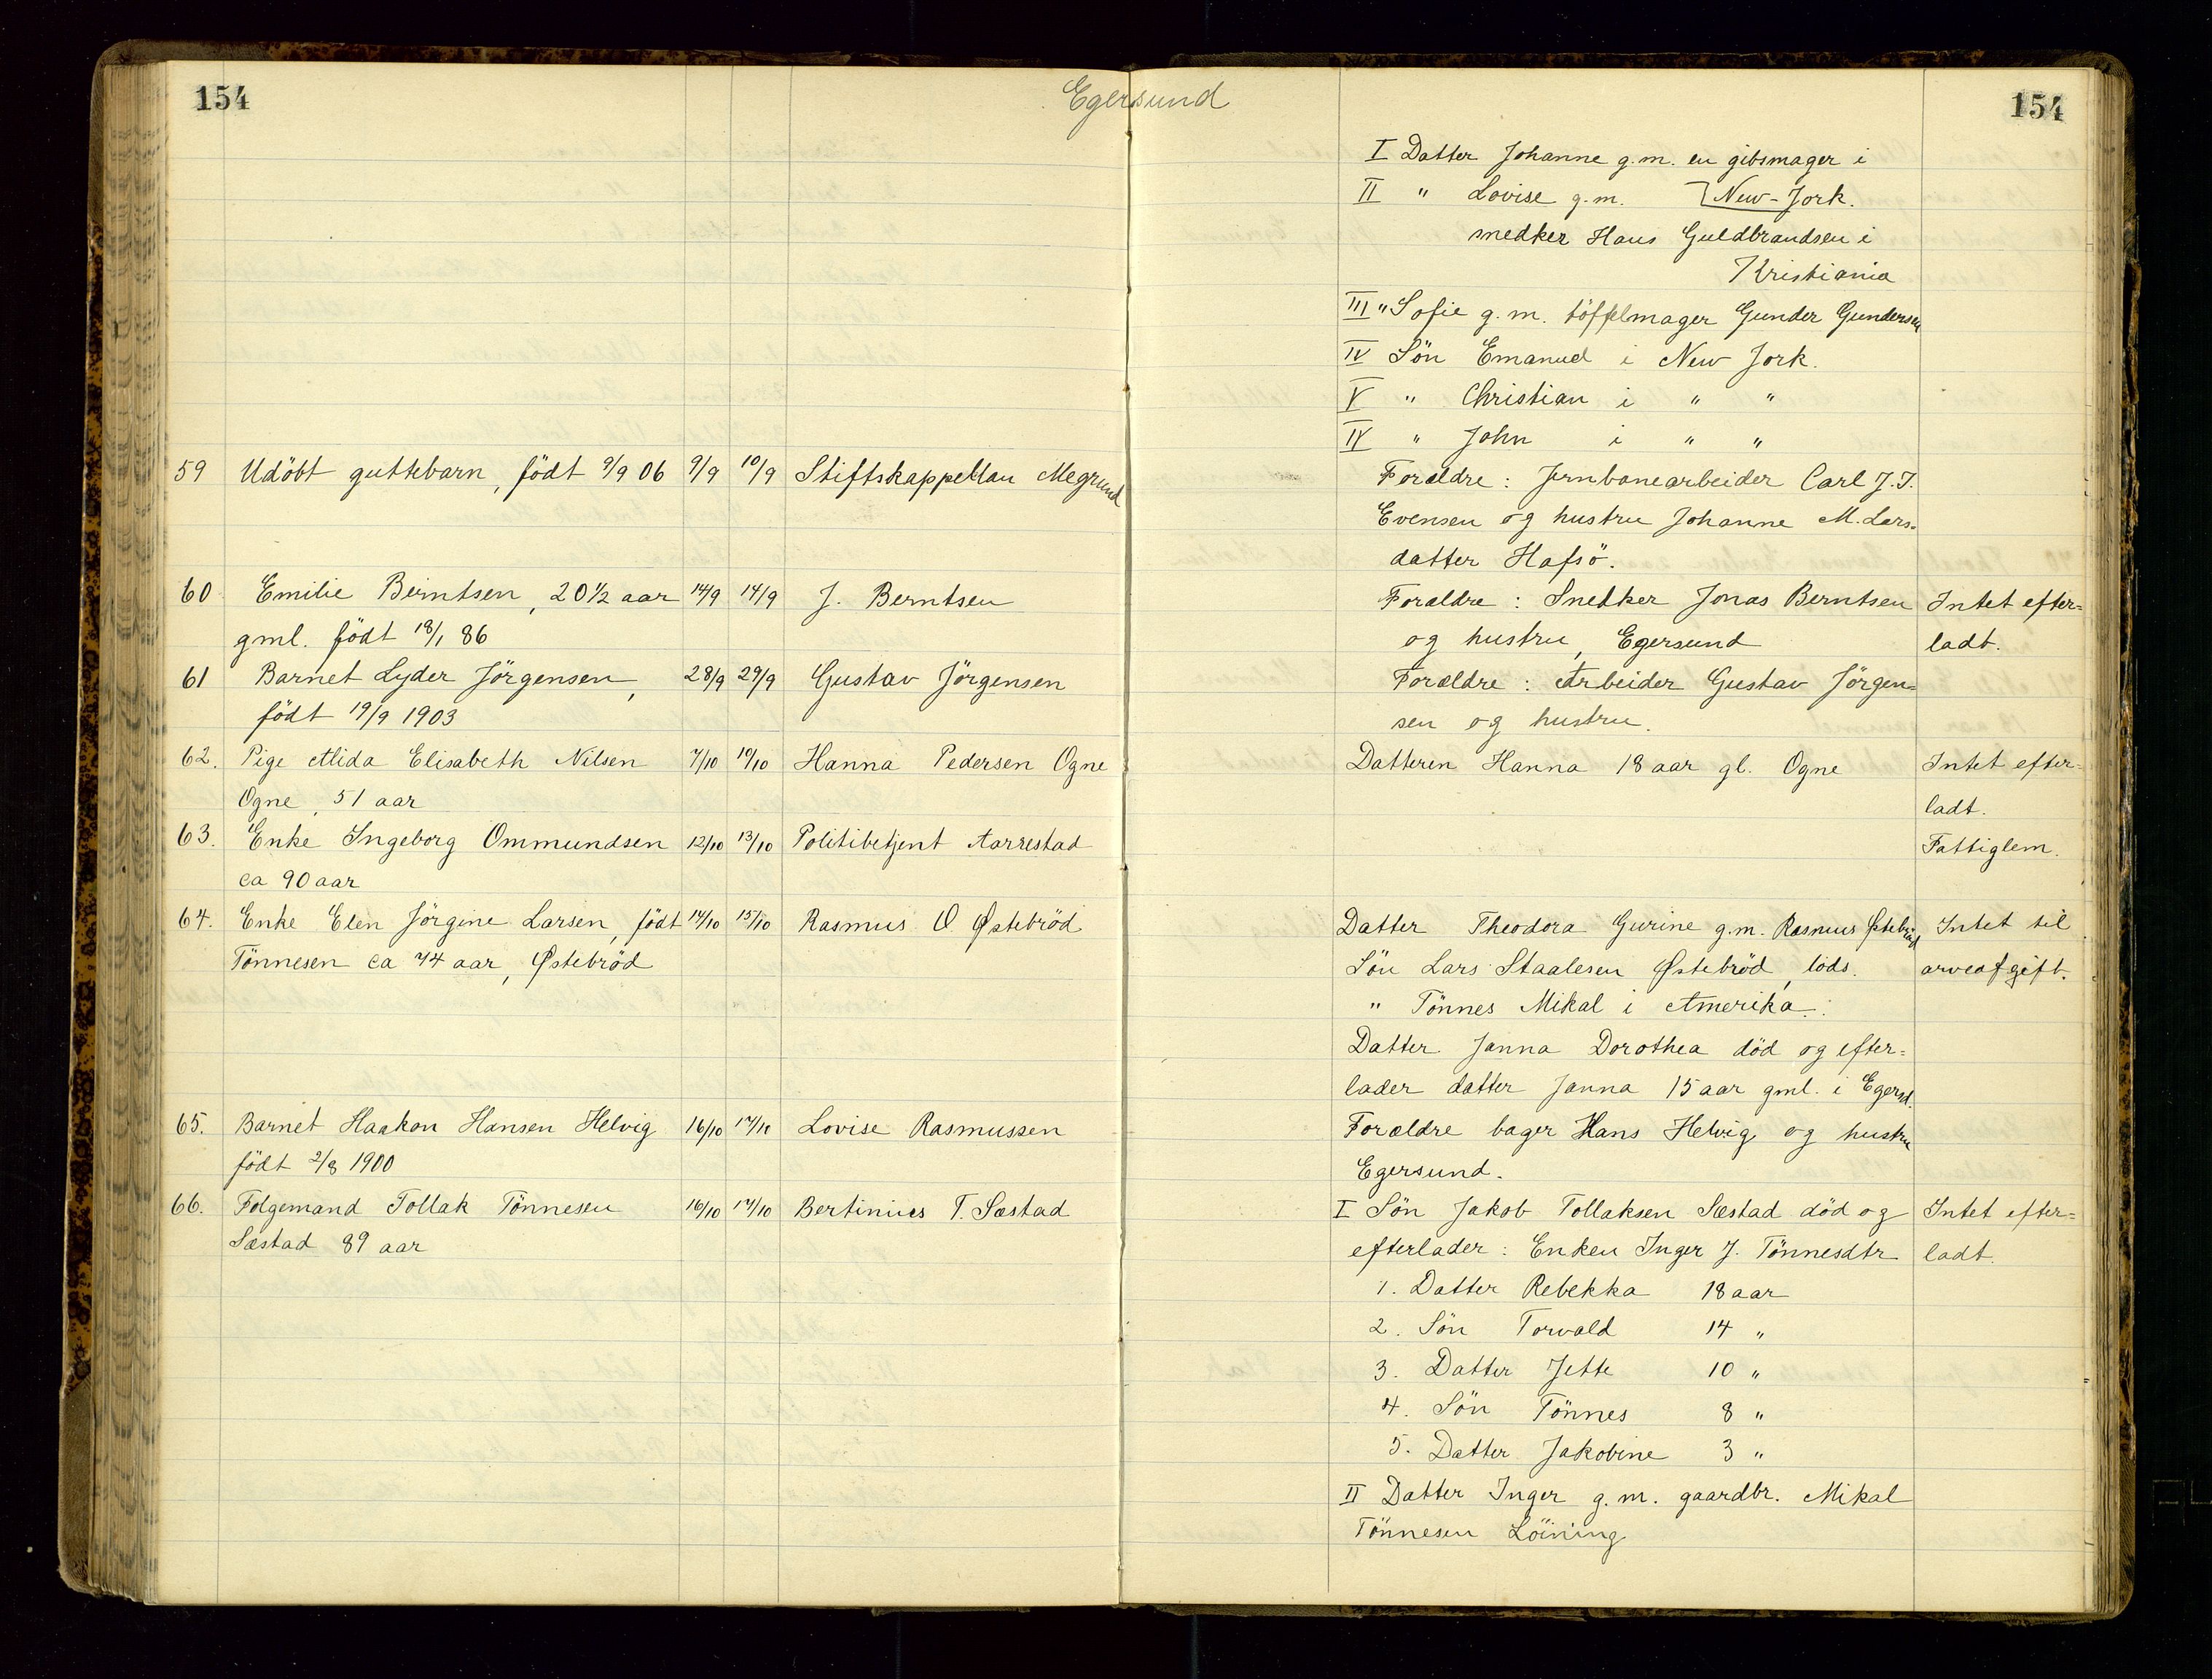 154
Egersund
154
I Datter Johanne g.m. en gibsmager i
II " Lovise g.m. New-Jork.
snedker Hans Guldbrandsen i
Kristiania
III " Sofie g.m. töffelmager Gunder Gundersen
IV Sön Emanuel i New Jork.
V " Christian i " "
IV " John i " "
59 Udöbt guttebarn, födt 9/9 06 9/9 10/9 Stiftskappellan Megrund
Forældre: Jernbanearbeider Carl J. J.
Evensen og hustru Johanne M. Lars-
datter Hafsö.
60 Emilie Berntsen, 20 1/2 aar 14/9 14/9 J. Berntsen
gml. födt 18/1 86
Forældre: Snedker Jonas Berntsen Intet efter=
og hustru, Egersund ladt.
61 Barnet Lyder Jörgensen, 28/9 29/9 Gustav Jörgensen
födt 19/9 1903
Forældre: Arbeider Gustav Jörgen=
sen og hustru.
62. Pige Alida Elisabeth Nilsen 7/10 10/10 Hanna Pedersen Ogne
Ogne, 51 aar
Datteren Hanna 18 aar gl. Ogne Intet efter-
ladt.
63. Enke Ingeborg Ommundsen 12/10 13/10 Politibetjent Aarrestad
ca 90 aar
Fattiglem.
64. Enke Elen Jörgine Larsen, födt 14/10 15/10 Rasmus O Østebröd
Tönnesen ca 74 aar, Østebröd
Datter Theodora Gurine g.m. Rasmus Østebröd Intet til
Sön Lars Staalesen Østebröd, lods. arveafgift.
" Tönnes Mikal i Amerika.
Datter Janna Dorothea död og efter=
lader datter Janna 15 aar gml. i Egersd.
65. Barnet Haakon Hansen Helvig 16/10 17/10 Lovise Rasmussen
födt 2/8 1900
Forældre bager Hans Helvig og hustru
Egersund.
66. Folgemand Tollak Tönnesen 16/10 17/10 Bertinius T. Sæstad
Sæstad 89 aar
I Sön Jakob Tollaksen Sæstad död og Intet efter=
efterlader: Enken Inger J. Tönnesdtr ladt.
1. Datter Rebekka 18 aar
2. Sön Torvald 14 "
3. Datter Jette 10 "
4. Sön Tönnes 8 "
5. Datter Jakobine 3 "
II Datter Inger g.m. gaardbr. Mikal
Tönnesen Löining